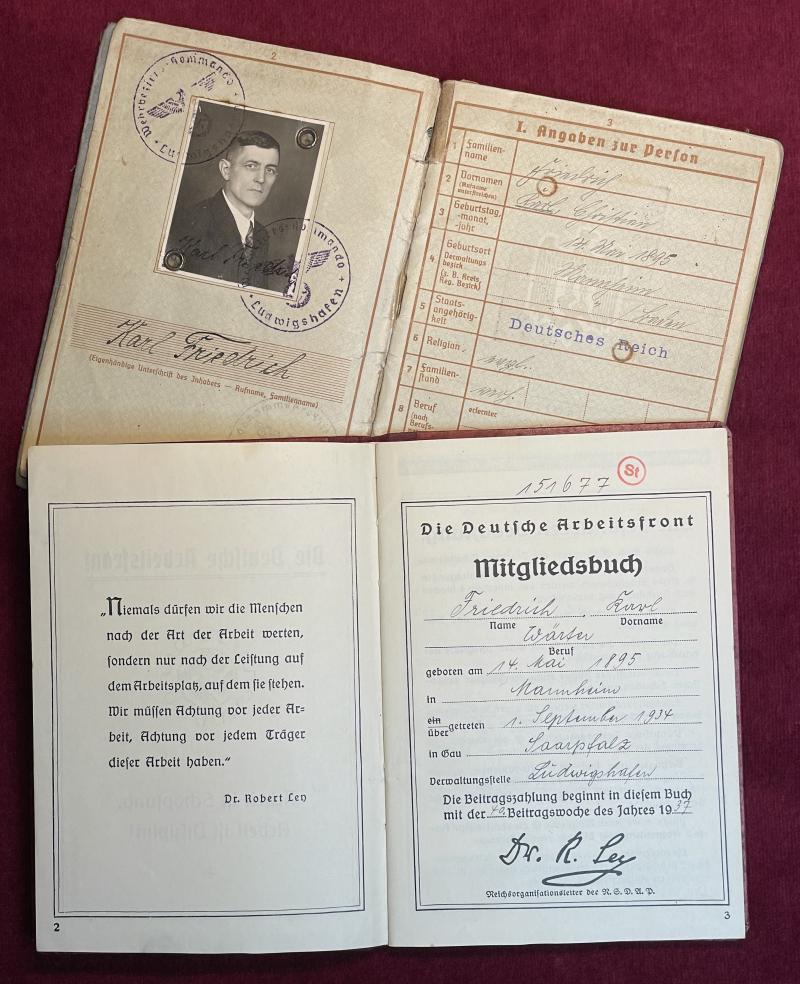 2
Wehrbezirks-Kommando
Ludwigshafen
Karl Friedrich
Ludwigshafen
Karl Friedrich
(Eigenhändige Unterschrift des Inhabers — Rufname, Familienname)
3
I. Angaben zur Person
1 Familien-
name
Friedrich
2 Vornamen
(Rufname
unterstreichen)
Karl,
3 Geburtstag,
-monat,
-jahr
14. Mai 1895
4 Geburtsort
Verwaltungs-
bezirk
(z. B. Kreis,
Reg. Bezirk)
Mannheim
Baden
5 Staats-
angehörig-
keit
Deutsches Reich
6 Religion
evgl.
7 Familien-
stand
verh.
8 Beruf
(nach
Berufs-
erlernter
„Niemals dürfen wir die Menschen
nach der Art der Arbeit werten,
sondern nur nach der Leistung auf
dem Arbeitsplatz, auf dem sie stehen.
Wir müssen Achtung vor jeder Ar-
beit, Achtung vor jedem Träger
dieser Arbeit haben.“
Dr. Robert Ley
2
151677 St
Die Deutsche Arbeitsfront
Mitgliedsbuch
Friedrich Karl
Name Vorname
Wärter
Beruf
geboren am 14. Mai 1895
in Mannheim
ein
übergetreten 1. September 1934
in Gau Saarpfalz
Verwaltungsstelle Ludwigshafen
Die Beitragszahlung beginnt in diesem Buch
mit der 40. Beitragswoche des Jahres 1937
Dr. R. Ley
Reichsorganisationsleiter der N.S.D.A.P.
3